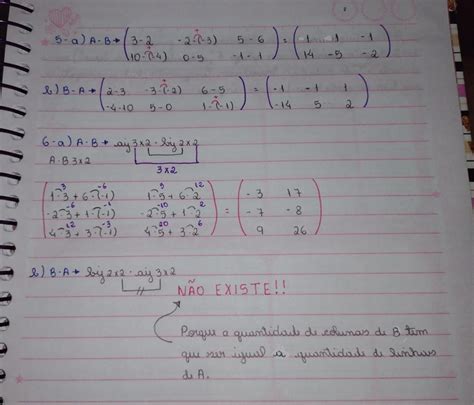 5-a) A-B→ (3-2 -2-(-3) 5-6) = (1 1 -1)
(10-(-4) 0-5 -1-1) (14 -5 -2)
b) B-A→ (2-3 -3-(-2) 6-5) = (-1 -1 1)
(-4-10 5-0 1-(-1)) (-14 5 2)
6-a) A·B→ aij 3x2 · bij 2x2
A·B 3x2
3x2
(1·3+6·(-1) 1·5+6·2) = (-3 17)
(-2·3+1·(-1) -2·5+1·2) (-7 -8)
(4·3+3·(-1) 4·5+3·2) (9 26)
b) B·A→ bij 2x2 · aij 3x2
NÃO EXISTE!!
Porque a quantidade de colunas de B tem
que ser igual a quantidade de linhas
de A.